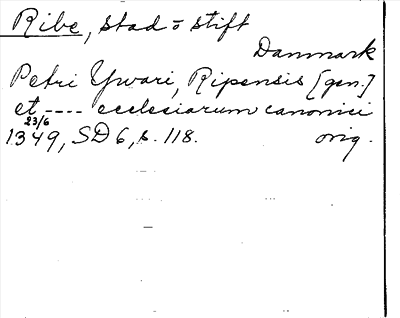 Ribe, stad o stift
Danmark
Petri Ywari, Ripensis [gen.]
et ---- ecclesiarum canonici
23/6
1349, SD 6, s. 118. orig.